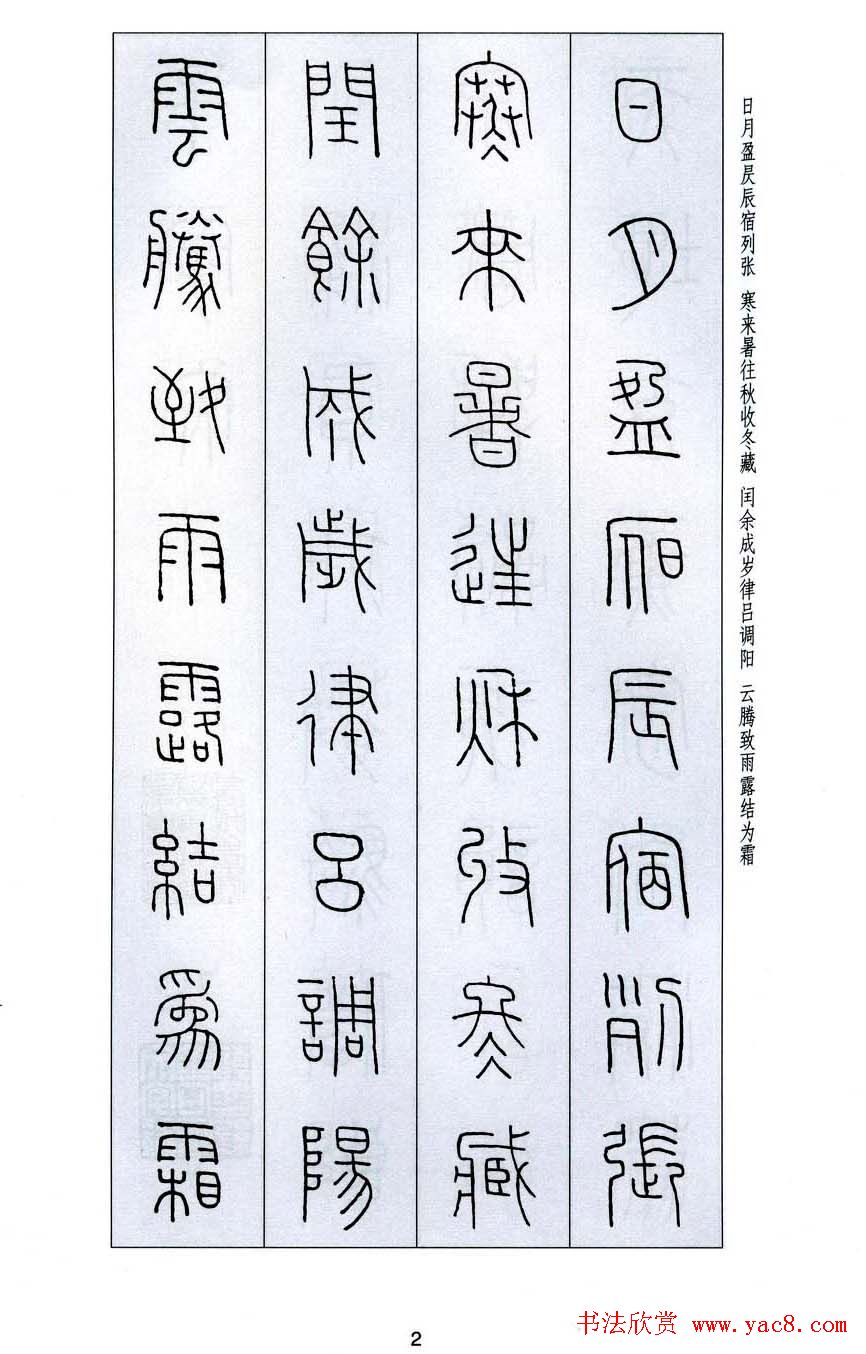 日月盈昃辰宿列张 寒来暑往秋收冬藏 闰余成岁律吕调阳 云腾致雨露结为霜
日月盈昃辰宿列張
寒來暑往秋收冬臧
閏餘成歲律呂調陽
雲騰致雨露結爲霜
2
书法欣赏 www.yac8.com